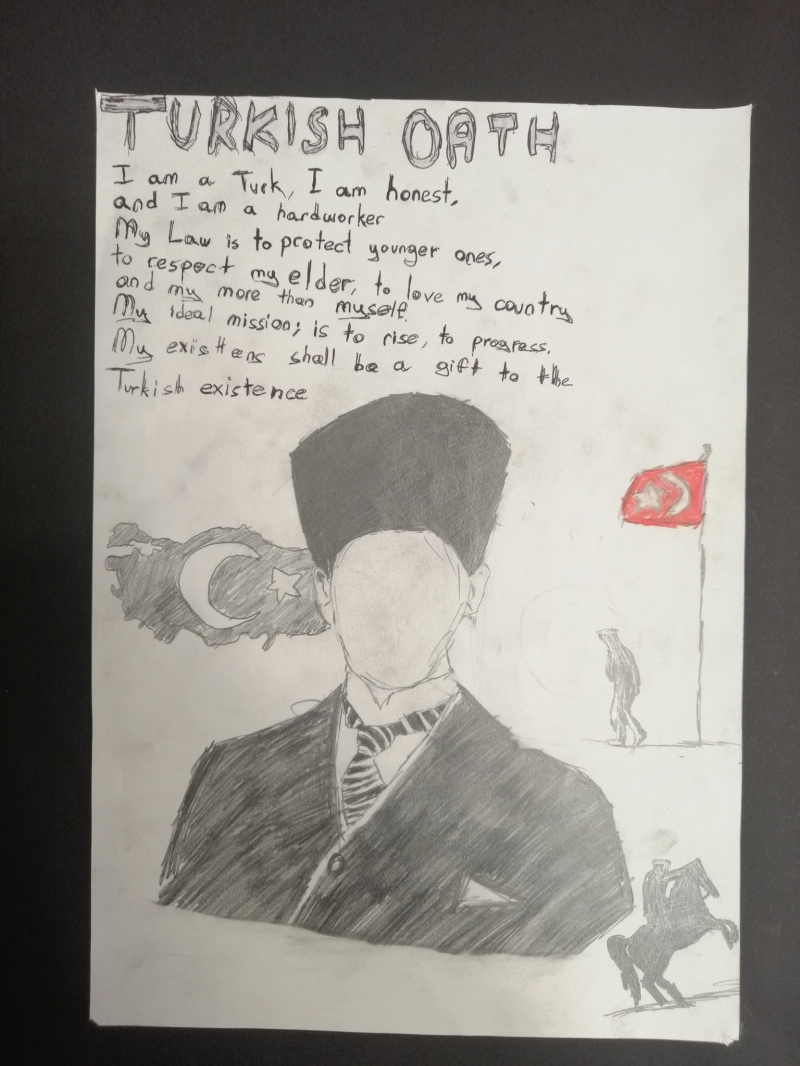 TURKISH OATH
I am a Turk, I am honest,
and I am a hardworker
My Law is to protect younger ones,
to respect my elder, to love my country
and my more than myself
My ideal mission; is to rise, to progress.
My existtens shall be a gift to the
Turkish existence